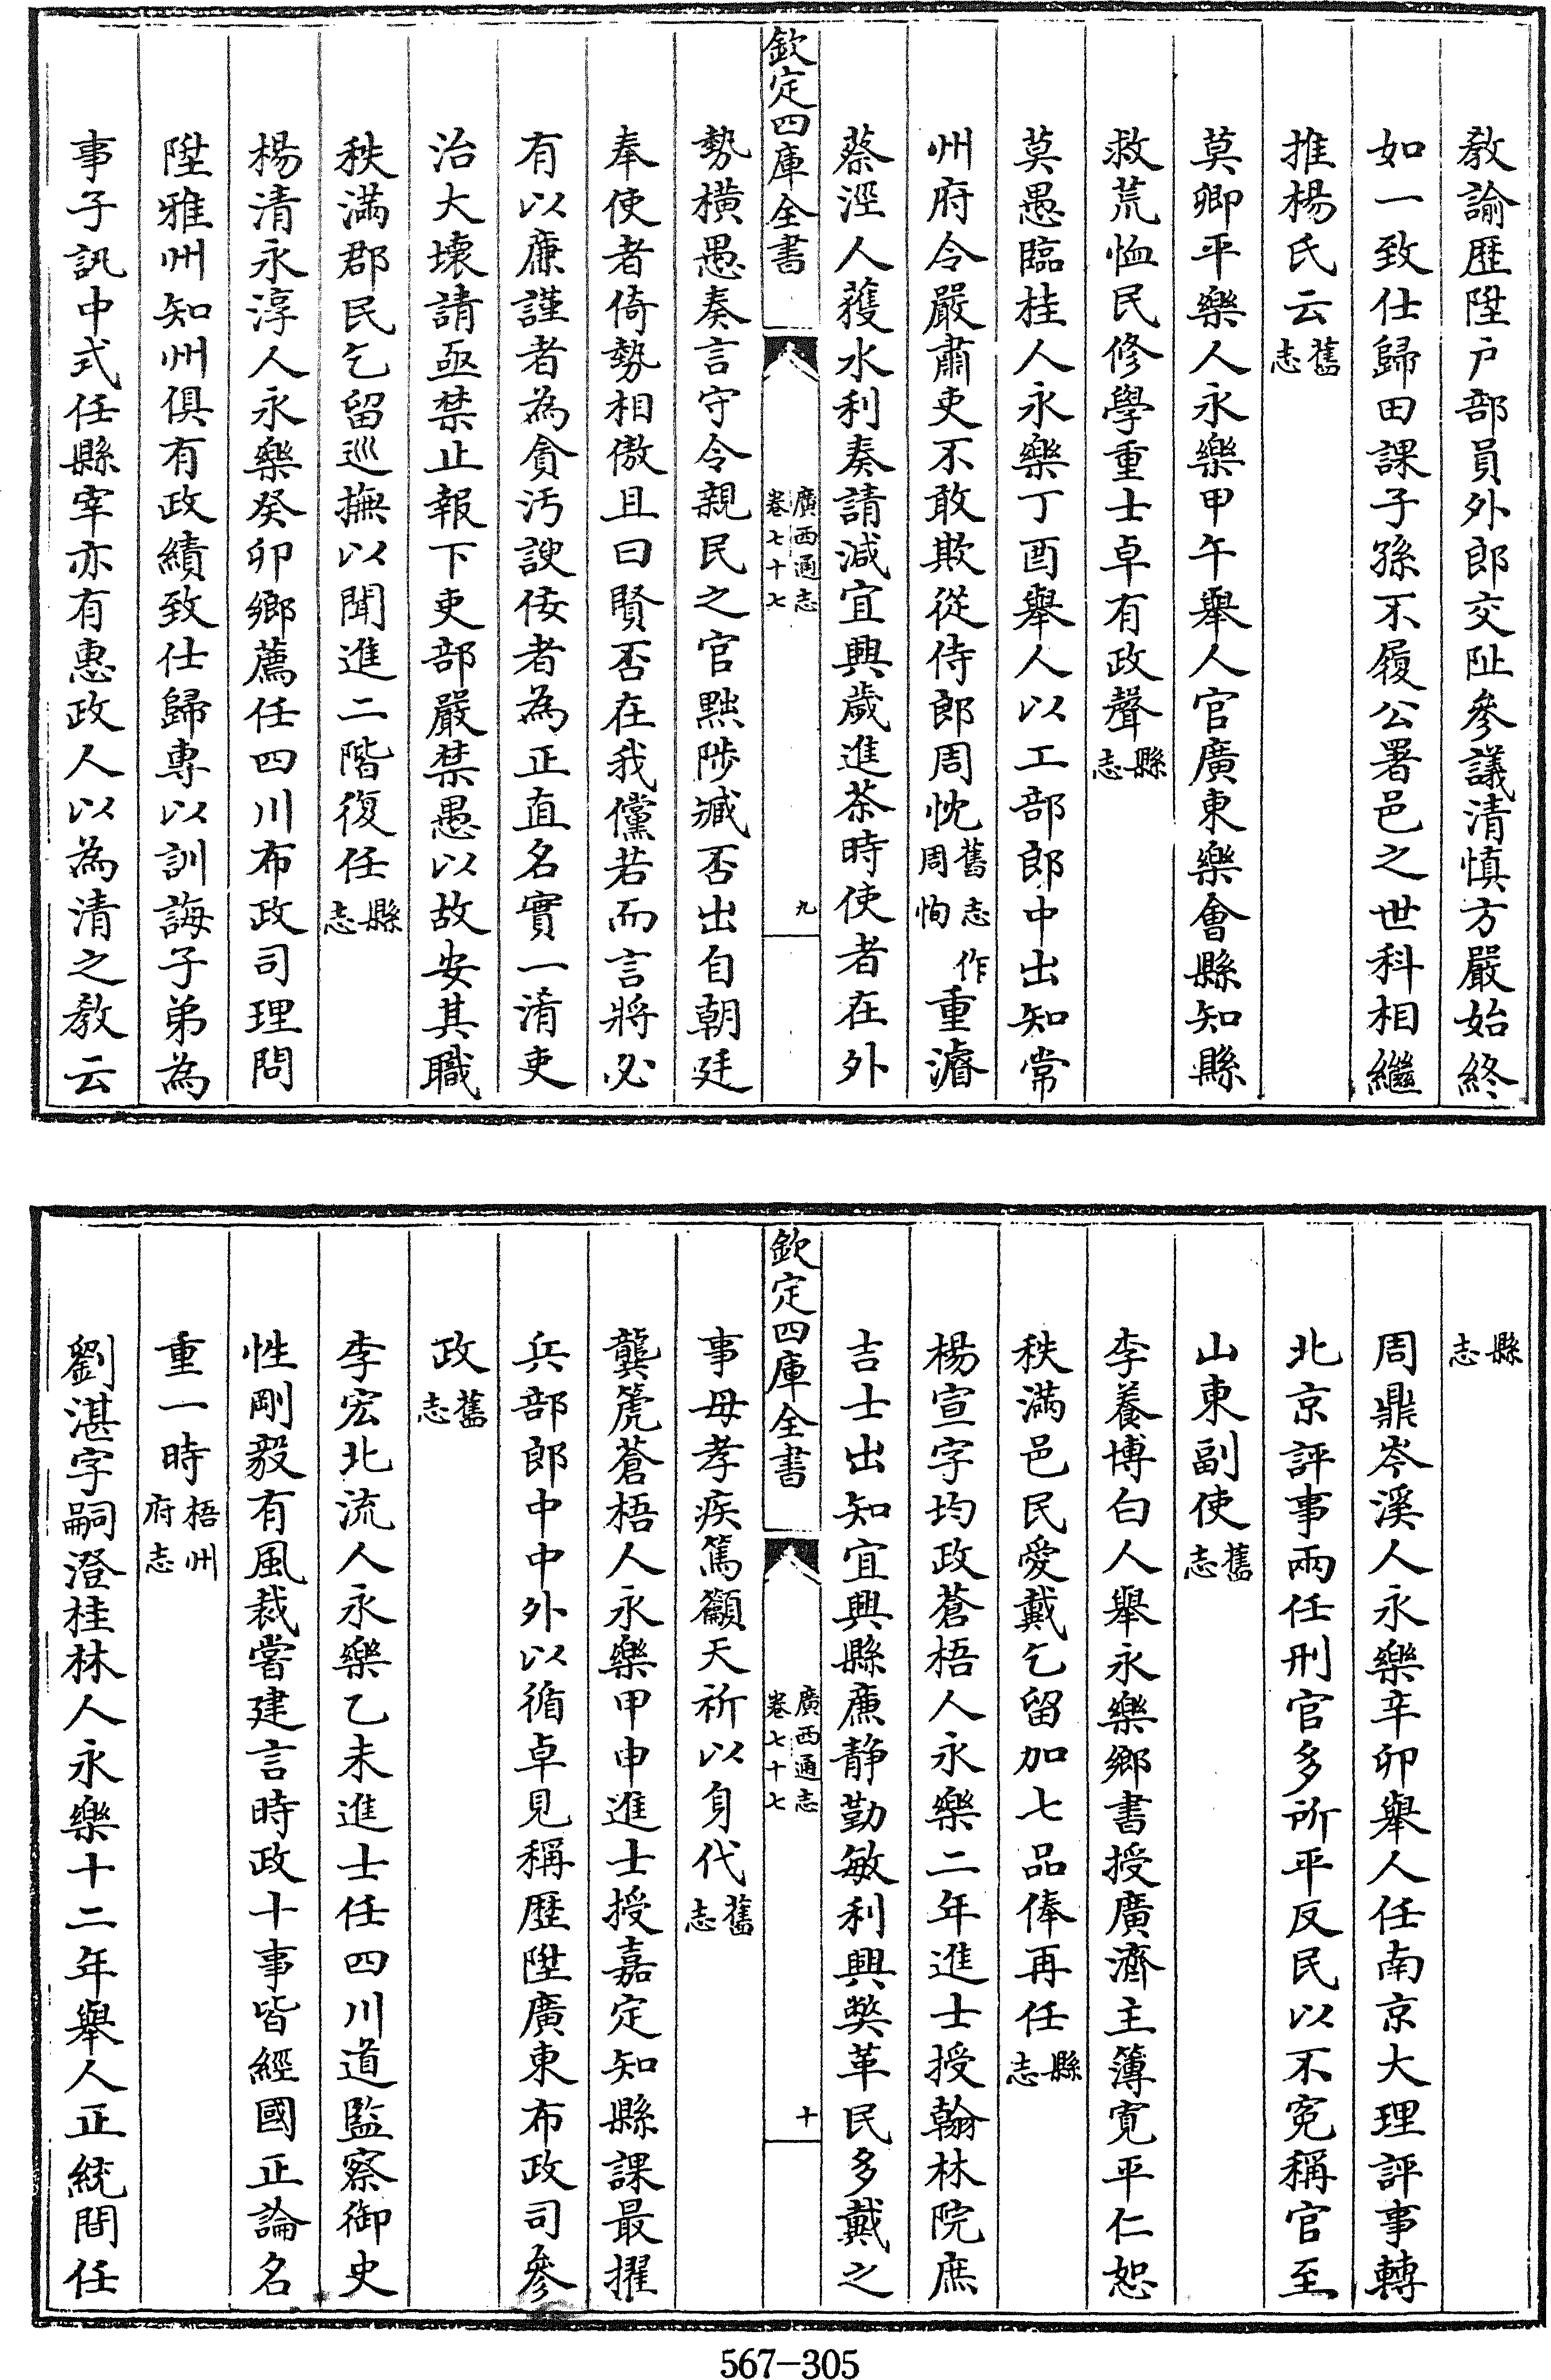 教諭歴陞户部員外郎交阯參議清慎方嚴始終
如一致仕歸田課子孫不履公署邑之世科相繼
推楊氏云舊志
莫卿平樂人永樂甲午舉人官廣東樂會縣知縣
救荒恤民修學重士卓有政聲縣志
莫愚臨桂人永樂丁酉舉人以工部郎中出知常
州府令嚴肅吏不敢欺從侍郎周忱舊志作周恂重濬
蔡涇人獲水利奏請減宜興歲進茶時使者在外
欽定四庫全書
廣西通志
卷七十七
九
勢橫愚奏言守令親民之官黜陟臧否出自朝廷
奉使者倚勢相傲且曰賢否在我儻若而言將必
有以亷謹者為貪汚諛佞者為正直名實一淆吏
治大壞請亟禁止報下吏部嚴禁愚以故安其職
秩滿郡民乞留巡撫以聞進二階復任縣志
楊清永淳人永樂癸卯鄉薦任四川布政司理問
陞雅州知州俱有政績致仕歸專以訓誨子弟為
事子訊中式任縣宰亦有惠政人以為清之教云
縣志
周鼎岑溪人永樂辛卯舉人任南京大理評事轉
北京評事兩任刑官多所平反民以不寃稱官至
山東副使舊志
李養博白人舉永樂鄉書授廣濟主簿寛平仁恕
秩滿邑民愛戴乞留加七品俸再任縣志
楊宣字均政蒼梧人永樂二年進士授翰林院庶
吉士出知宜興縣亷静勤敏利興獘革民多戴之
欽定四庫全書
廣西通志
卷七十七
十
事母孝疾篤籲天祈以身代舊志
龔篪蒼梧人永樂甲申進士授嘉定知縣課最擢
兵部郎中中外以循卓見稱歴陞廣東布政司參
政舊志
李宏北流人永樂乙未進士任四川道監察御史
性剛毅有風裁嘗建言時政十事皆經國正論名
重一時梧州府志
劉湛字嗣澄桂林人永樂十二年舉人正統間任
567-305